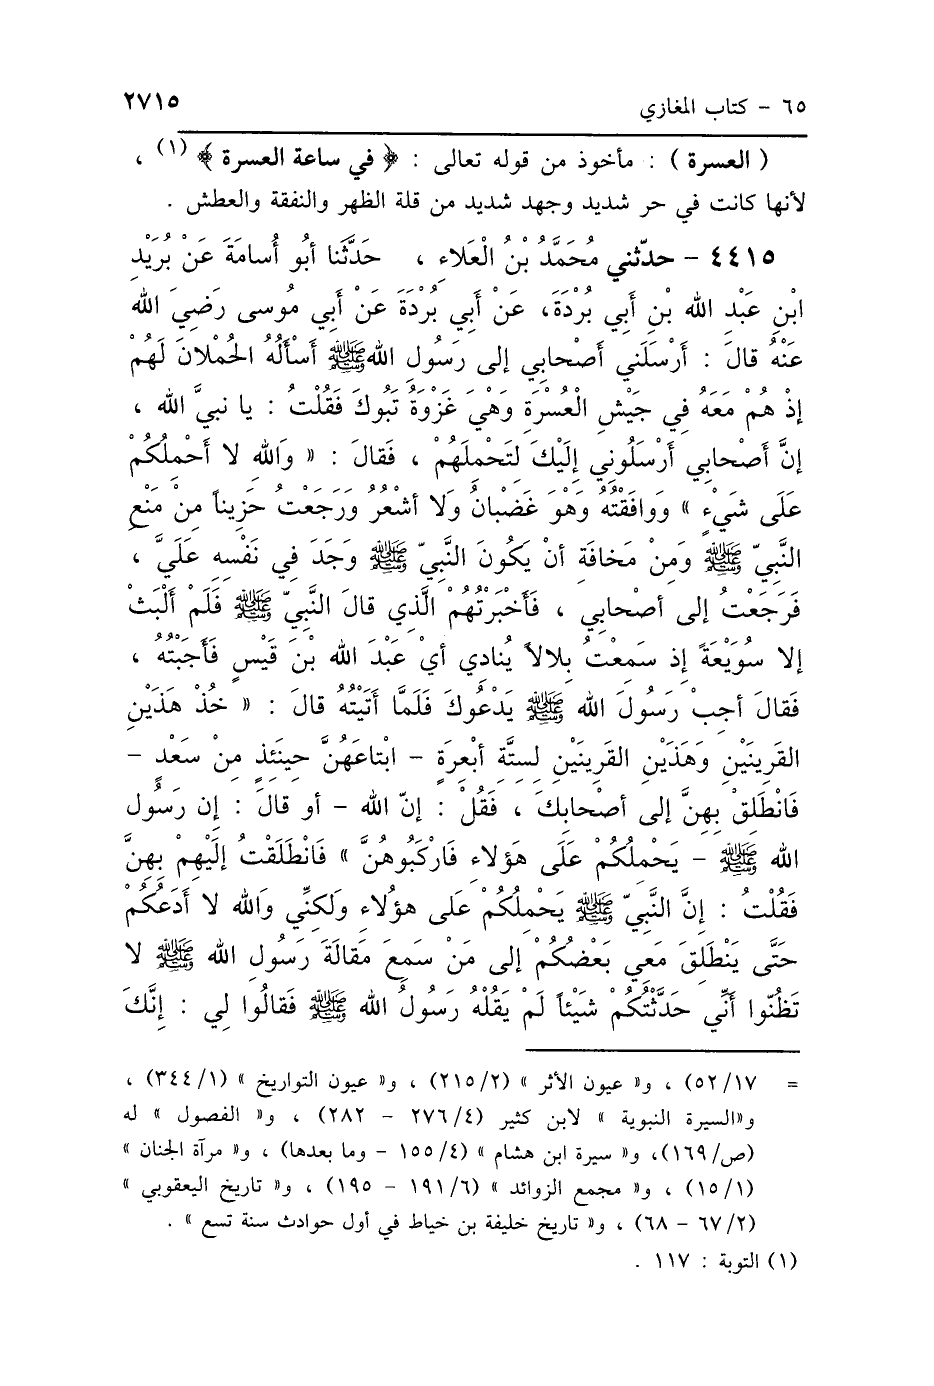 ٦٥ - كتاب المغازي ٢٧١٥
( العسرة ) : مأخوذ من قوله تعالى : ﴿ في ساعة العسرة ﴾ (١) ،
لأنها كانت في حر شديد وجهد شديد من قلة الظهر والنفقة والعطش .
٤٤١٥ - حدّثني مُحَمَّدُ بْنُ الْعَلاءِ ، حَدَّثَنا أبُو أُسامَةَ عَنْ بُرَيْدِ
ابْنِ عَبْدِ الله بْنِ أَبِي بُرْدَةَ، عَنْ أَبِي بُرْدَةَ عَنْ أَبِي مُوسى رَضِيَ الله
عَنْهُ قالَ : أَرْسَلَني أَصْحابي إلى رَسُولِ اللهﷺ أَسْأَلُهُ الحُمْلانَ لَهُمْ
إذْ هُمْ مَعَهُ فِي جَيْشِ الْعُسْرَةِ وَهْيَ غَزْوَةُ تَبُوكَ فَقُلْتُ : يا نبيَّ الله ،
إنَّ أَصْحابي أَرْسَلُوني إلَيْكَ لتَحْمِلَهُمْ ، فَقالَ : « وَالله لا أَحْمِلُكُمْ
عَلَى شَيْءٍ » وَوافَقْتُهُ وَهْوَ غَضْبانُ وَلا أشْعُرُ وَرَجَعْتُ حَزِيناً مِنْ مَنْعِ
النَّبِيّ ﷺ وَمِنْ مَخافَةِ أنْ يَكُونَ النَّبِيّ ﷺ وَجَدَ فِي نَفْسِهِ عَلَيَّ ،
فَرَجَعْتُ إلى أصْحابي ، فَأَخْبَرْتُهُمْ الَّذي قالَ النَّبِيّ ﷺ فَلَمْ أَلْبَثْ
إلا سُوَيْعَةً إذ سَمِعْتُ بِلالاً يُنادي أيْ عَبْدَ الله بْنَ قَيْسٍ فَأَجَبْتُهُ ،
فَقالَ أجِبْ رَسُولَ الله ﷺ يَدْعُوكَ فَلَمَّا أَتَيْتُهُ قالَ : « خُذْ هَذَيْنِ
القَرِينَيْنِ وَهَذَيْنِ القَرِينَيْنِ لِستَّةِ أَبْعِرَةٍ - ابْتاعَهُنَّ حِينَئذٍ مِنْ سَعْدٍ -
فَانْطَلِقْ بِهِنَّ إلى أصْحابِكَ ، فَقُلْ : إنّ الله - أو قالَ : إن رَسُول
الله ﷺ - يَحْمِلُكُمْ عَلَى هَؤلاءِ فَارْكَبُوهُنَّ » فَانْطَلَقْتُ إلَيْهِمْ بِهِنَّ
فَقُلْتُ : إنَّ النَّبِيّ ﷺ يَحْمِلُكُمْ عَلى هؤُلاءِ ولَكِنِّي وَالله لا أَدَعُكُمْ
حَتَّى يَنْطَلِقَ مَعِي بَعْضُكُمْ إلى مَنْ سَمِعَ مَقالَةَ رَسُولِ الله ﷺ لا
تَظُنّوا أَنِّي حَدَّثْتُكُمْ شَيْئاً لَمْ يَقُلْهُ رَسُولُ الله ﷺ فَقالُوا لِي : إنَّكَ
= ٥٢/١٧) ، و« عيون الأثر » (٢١٥/٢) ، و« عيون التواريخ » (٣٤٤/١) ،
و«السيرة النبوية » لابن كثير (٢٧٦/٤ - ٢٨٢) ، و« الفصول » له
(ص/١٦٩)، و« سيرة ابن هشام » (١٥٥/٤ - وما بعدها) ، و« مرآة الجنان »
(١٥/١) ، و« مجمع الزوائد » (١٩١/٦ - ١٩٥) ، و« تاريخ اليعقوبي »
(٦٧/٢ - ٦٨) ، و« تاريخ خليفة بن خياط في أول حوادث سنة تسع » .
(١) التوبة : ١١٧ .